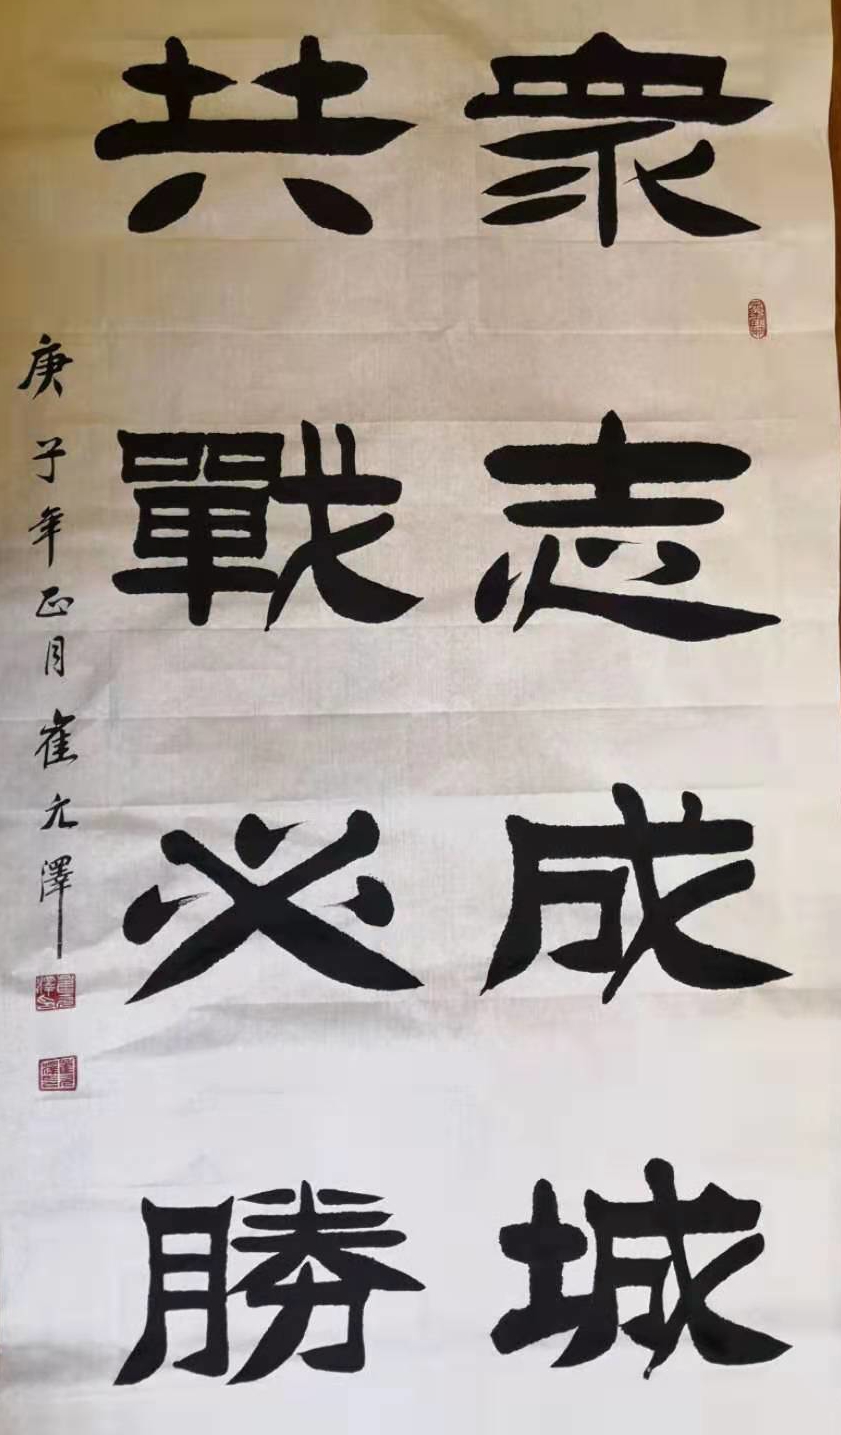 衆志成城
共戰必勝
庚子年正月崔元澤